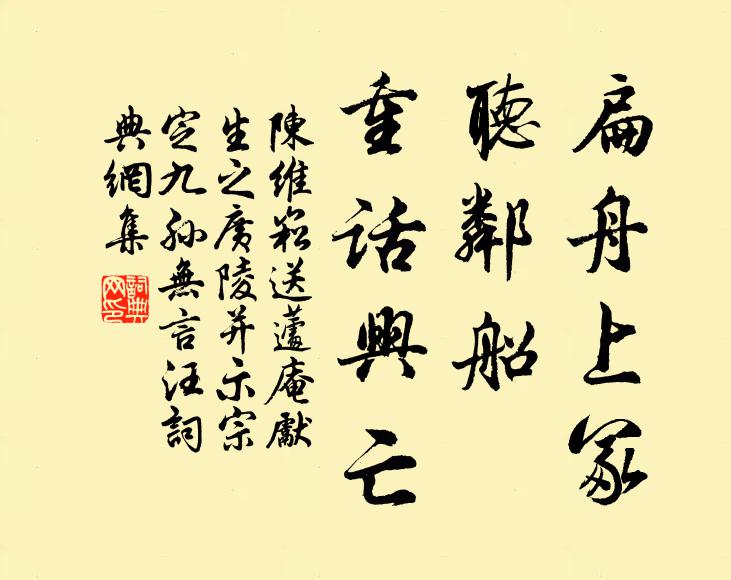 扁舟上冢
聽鄰船
重話興亡
陳維崧送蘧庵獻
生之廣陵并示宗
定九孫無言汪詞
典網集
詞典網印